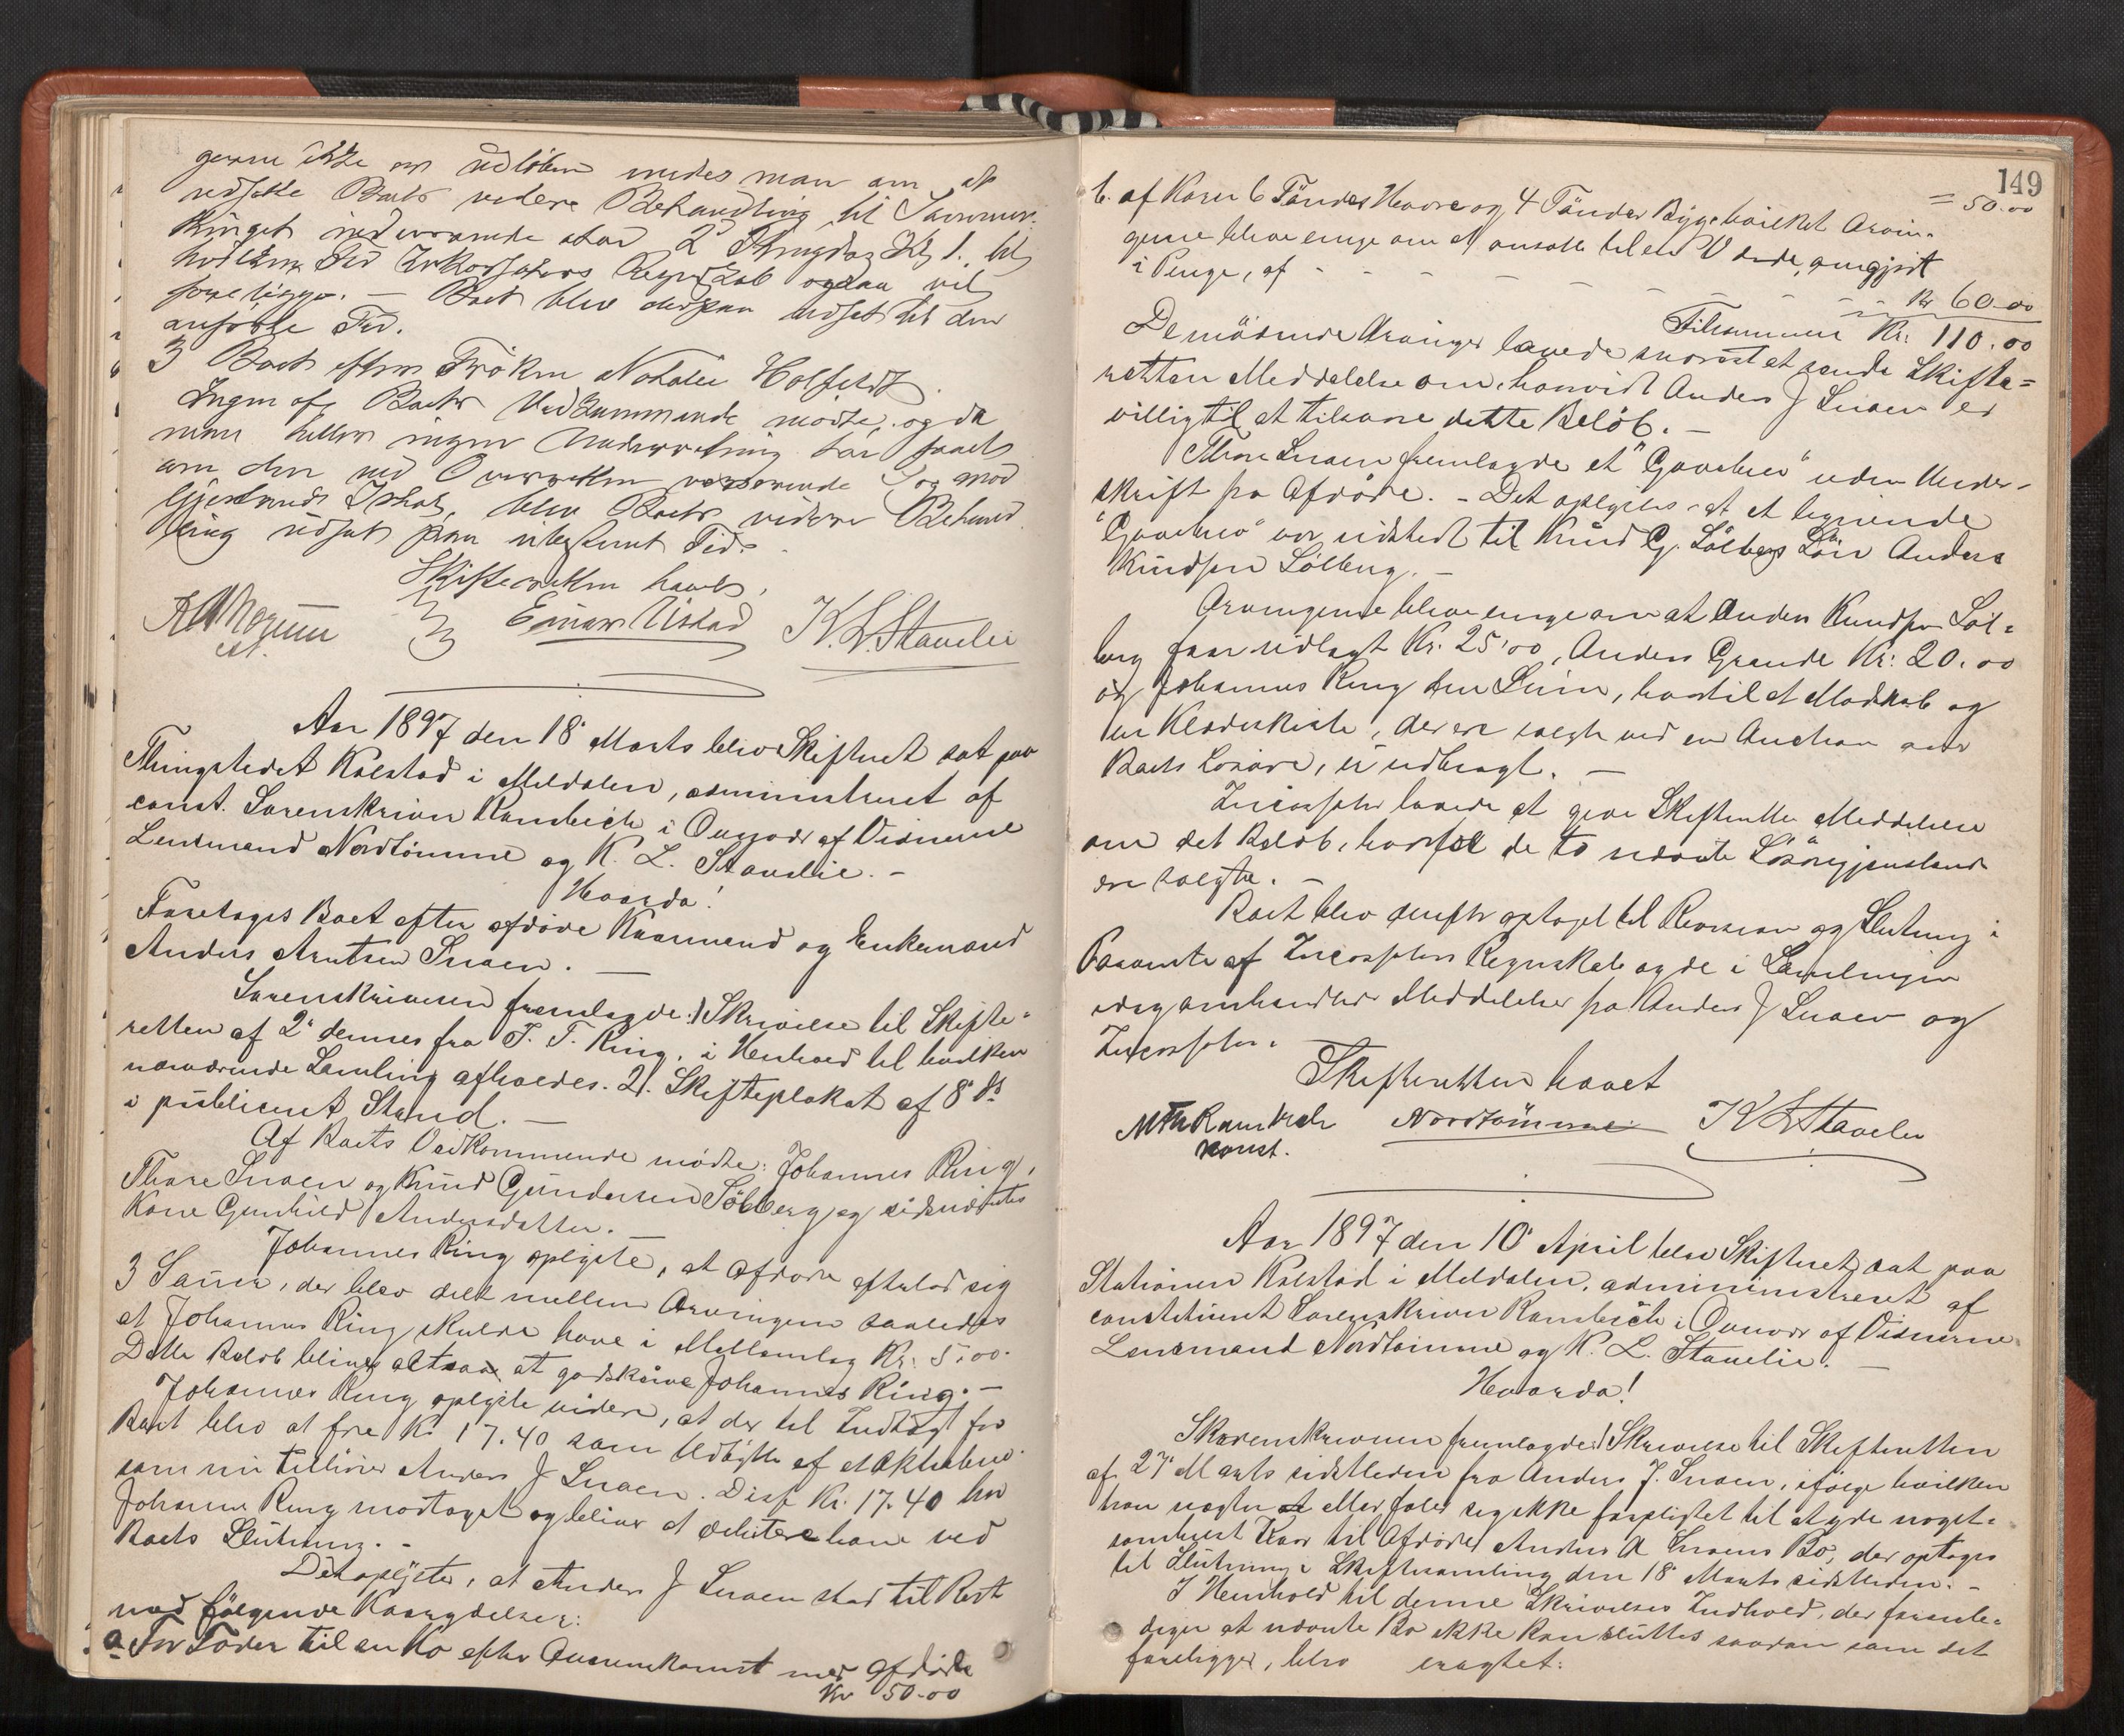 gerne ikke er udløben enedes man om at
udsætte Boets videre Behandling til Sommer-
thinget indeværende Aar 2' Thingdag Kl. 1. til
hvilken Tid Inkassators Regnskab ogsaa vil
foreligge. — Boet blev derpaa udsat til den
anførte Tid.
3 Boet efter Frøken Natalie Holfeldt.
Ingen af Boets Vedkommende mødte, og da
man heller ingen Underretning har faaet
om den ved Overretten verserende Sag mod
blev Boets videre Behand-
ling udsat paa ubestemt Tid.
Skifteretten hævet,
Einar Ustad K. L. Stavelie
Aar 1897 den 18' Marts blev Skifteret sat paa
Thingstedet Kalstad i Meldalen, administreret af
const. Sorenskriver Rambech i Overvær af Vidnerne
Lensmand Nordtømme og K. L. Stavelie. -
Hvorda!
Foretoges Boet efter afdøde Kaarmand og Enkemand
Anders Arntsen Snoen. —
Sorenskriveren fremlagde: 1) Skrivelse til Skifte-
retten af 2' dennes fra J. T. Ring, i Henhold til hvilken
nærværende Samling afholdes. 2). Skifteplakat af 8' ds
i publiceret Stand. —
Af Boets Vedkommende mødte: Johannes Ring,
Thore Snoen og Knud Gundersen Sølberg og sidstnævntes
Kone Gunhild Andersdatter. —
Johannes Ring oplyste, at afdøde efterlod sig
3 Sauer, der blev delt mellem Arvingerne saaledes
at Johannes Ring skulde have i Mellemlag Kr. 5.00.
Dette Beløb bliver altsaa at godskrive Johannes Ring. —
Johannes Ring oplyste videre, at der til Indtægt for
Boet blev at føre Kr. 17.40 som Udbytte af et
som nu tilhører Anders J Snoen. Disse Kr. 17.40 har
Johannes Ring modtaget og bliver at debitere ham ved
Boets Slutning. -
Det oplystes, at Anders J Snoen stod til Rest
med følgende Kaarydelser:
a For Foder til en Ko efter Overenskomst med afdøde
Kr 50.00
149
= 50.00
b. af Korn 6 Tønder Havre og 4 Tønder Byg, hvilket Arvin-
gerne bleve enige om at ansætte til en Værdi, omgjort
i Penge, af - - - - - - - Kr 60.00
Tilsammen Kr. 110.00
De mødende Arvinger lovede snarest at sende Skifte-
retten Meddelelse om, hvorvidt Anders J Snoen er
villig til at tilsvare dette Beløb. —
Thore Snoen fremlagde et "Gavebrev" uden Under-
skrift fra Afdøde. - Det oplystes at et lignende
"Gavebrev" var udstedt til Knud G. Sølbergs Søn Anders
Knudsen Sølberg. —
Arvingerne bleve enige om at Anders Knudsen Søl-
berg faar udlagt Kr. 25.00, Anders Grande Kr. 20.00
og Johannes Ring den Sum, hvortil et Madskab og
en Klædeskiste, der ere solgte ved en Auction over
Boets Løsøre, er udbragt. —
Incassator lovede at give Skifteretten Meddelelse
om det Beløb, hvorfor de to nævnte Løsøregjenstande
ere solgte. —
Boet blev derefter optaget til Revision og Slutning i
Paavente af Incassators Regnskab og de i Samlingen
idag omhandlede Meddelelser fra Anders J Snoen og
Incassator.
Skifteretten hævet
MTh Rambech Nordtømme K L Stavelie
const.
Aar 1897 den 10' April blev Skifteret sat paa
Stationen Kalstad i Meldalen, administreret af
constitueret Sorenskriver Rambech i Overvær af Vidnerne
Lensmand Nordtømme og K. L. Stavelie. —
Hvorda!
Skorenskriveren fremlagde: 1) Skrivelse til Skifteretten
af 27' Marts sidstleden fra Anders J. Snoen, ifølge hvilken
han negter at eller føler sig ikke forpligtet til at yde noget-
somhelst Kaar til Afdøde Anders A Snoens Bo, der optoges
til Slutning i Skiftesamling den 18' Marts sidstleden. -
I Henhold til denne Skrivelses Indhold, der foranle-
diger at nævnte Bo ikke kan sluttes saadan som det
foreligger, blev eragtet: